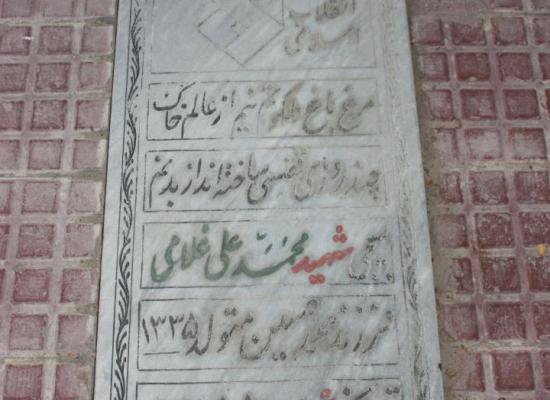 انقلاب
اسلامی
مرغ باغ ملکوتم نیم از عالم خاک
چند روزی قفسی ساخته اند از بدنم
شهید محمد علی غلامی
فرزند حسین متولد ۱۳۳۵